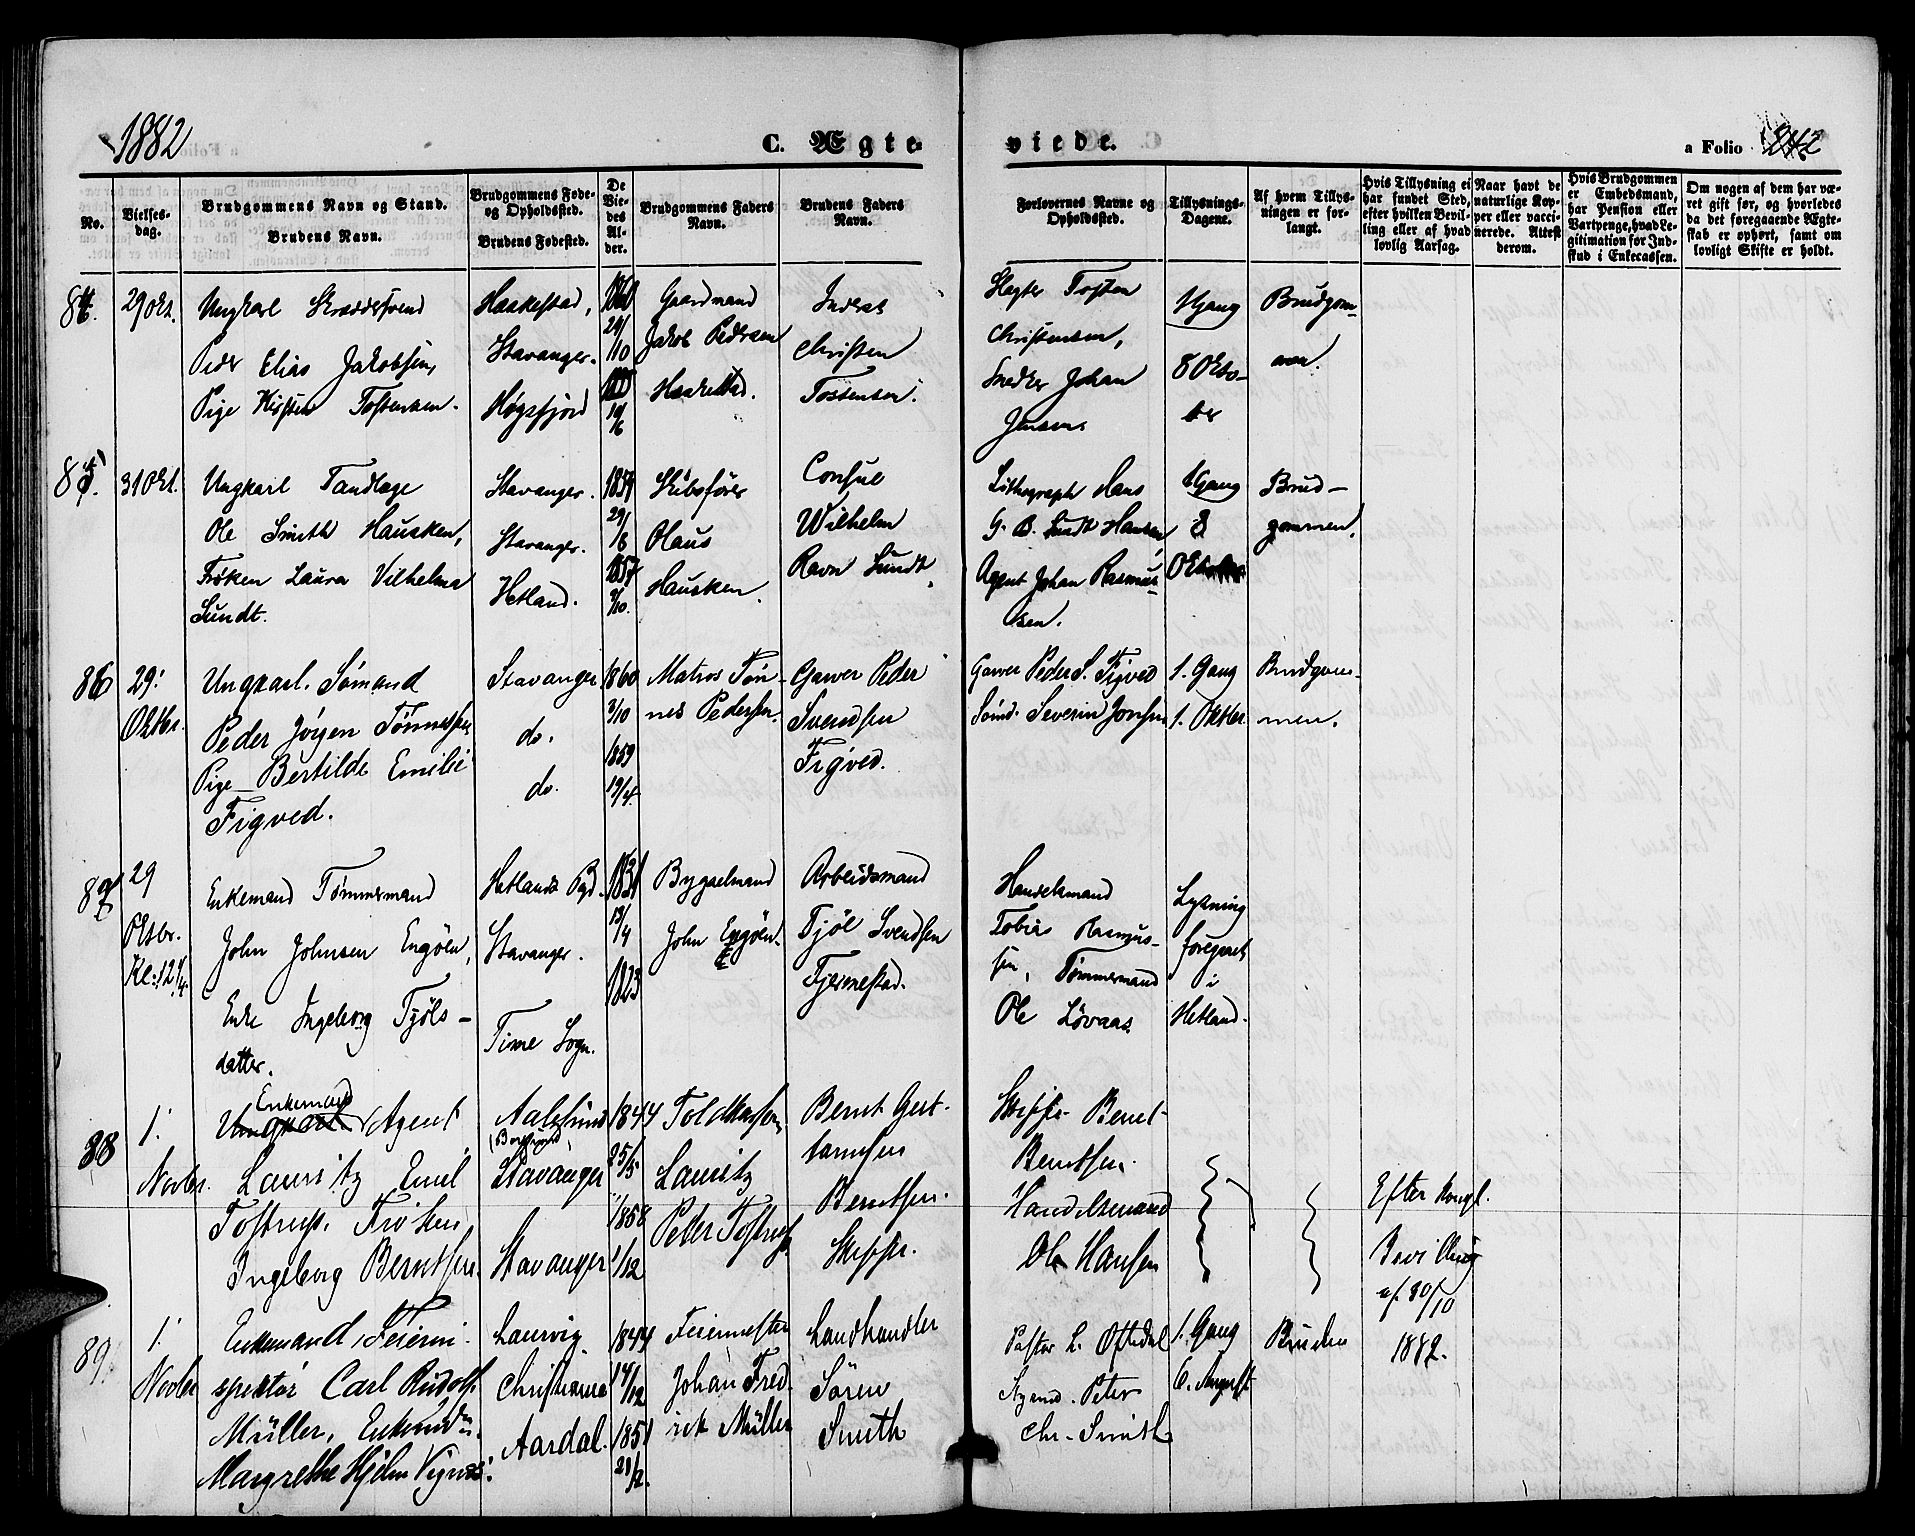 1882
C. Ægte
viede.
a Folio 242
No.
Vielses-
dag.
Brudgommens Navn og Stand.
Brudens Navn.
Brudgommens Føde-
og Opholdssted.
Brudens Fødested.
De
Vie-
des
Al-
der.
Brudgommens Faders
Navn.
Brudens Faders
Navn.
Forlovernes Navne og
Opholdssted.
Tillysnings-
Dagene.
Af hvem Tillys-
ningen er for-
langt.
Hvis Tillysning ei
har fundet Sted,
efter hvilken Bevil-
ling eller af hvad
lovlig Aarsag.
Naar havt de
naturlige Kop-
per eller vacci-
nerede. Attest
derom.
Hvis Brudgommen
er Embedsmand,
har Pension eller
Vartpenge, hvad Le-
gitimation for Ind-
skud i Enkecassen.
Om nogen af dem har væ-
ret gift før, og hvorledes
da det foregaaende Ægte-
skab er ophørt, samt om
lovligt Skifte er holdt.
84.
29 Okt.
Ungkarl Skræddersvend
Peder Elias Jakobsen,
Pige Kirsten Tostensen.
Haakestad,
Stavanger.
Høgsfjord
1860
29/10
19/6
Gaardmand
Jakob Pedersen
Haakestad.
Inderst
Christen
Tossensen.
Tosten
Christensen,
Snedker Johan
Jensen
1 Gang
8 Okto-
ber
Brudgom-
men.
85.
31 Okt.
Ungkarl Tandlæge
Ole Smith Hausken,
Frøken Laura Vilhelma
Sundt.
Stavanger.
Stavanger.
Hetland.
1859
29/8
1857
2/10.
Skibsfører
Olaus
Hausken.
Consul
Wilhelm
Ravn Sundt.
Lithograph Hans
G. B. Sundt Hansen,
Agent Johan Rasmus-
sen.
1 Gang
8
Oktober
Brud-
gommen.
86
29:
Oktbr.
Ungkarl. Sømand
Peder Jörgen Tönnessen
Pige Bertilde Emilie
Figved.
Stavanger
do.
do.
1860
3/10
1859
19/4
Matros Tön-
nes Pedersen.
Garver Peder
Svendsen
Figved.
Garver Peder S. Figved
Sömd. Severin Jonsen
1. Gang
1. Oktber
Brudgom-
men.
87
29
Oktbr.
Kl: 12 1/4
Enkemand Tømmermand
John Johnsen Engöen,
Enke Ingeborg Tjöls-
datter.
Hetlands Pgd.
Stavanger.
Time Sogn.
1831
13/4
1823
Bygselmand
John Engöen.
Arbeidsmand
Tjöl Svendsen
Tjermestad.
Handelsmand
Tobias Rasmus-
sen, Tømmermand
Ole Løvaas
Lysning
foregaaet
i
Hetland.
88
1.
Novbr.
Ungkarl Enkemand Agent
Lauritz Emil
Tostrup, Frøken
Ingeborg Berntsen.
Aalesund
(Borgund)
Stavanger
Stavanger
1844
25/5
1858
1/12
Toldkasserer
Lauritz
Peter Tostrup
Bernt Gert-
Berntsen.
Skippr.
Skippr. Bernt
Berntsen.
Handelsmand
Ole Hansen
Efter kongl.
Bevilling
af. 30/10
1882.
89.
1.
Novbr
Enkemand, Feierin-
spektör Carl Rudolf
Müller, Enkemad.
Margrethe Hjelm Vignæs.
Laurvig.
Christiania
Aardal.
1844
14/12
1851
21/2.
Feiermester
Johan Fred-
rik Müller
Landhandler
Sören
Smith
Pastor L. Oftedal
Peter
Chr. Smith
1. Gang
6. August
Bruden